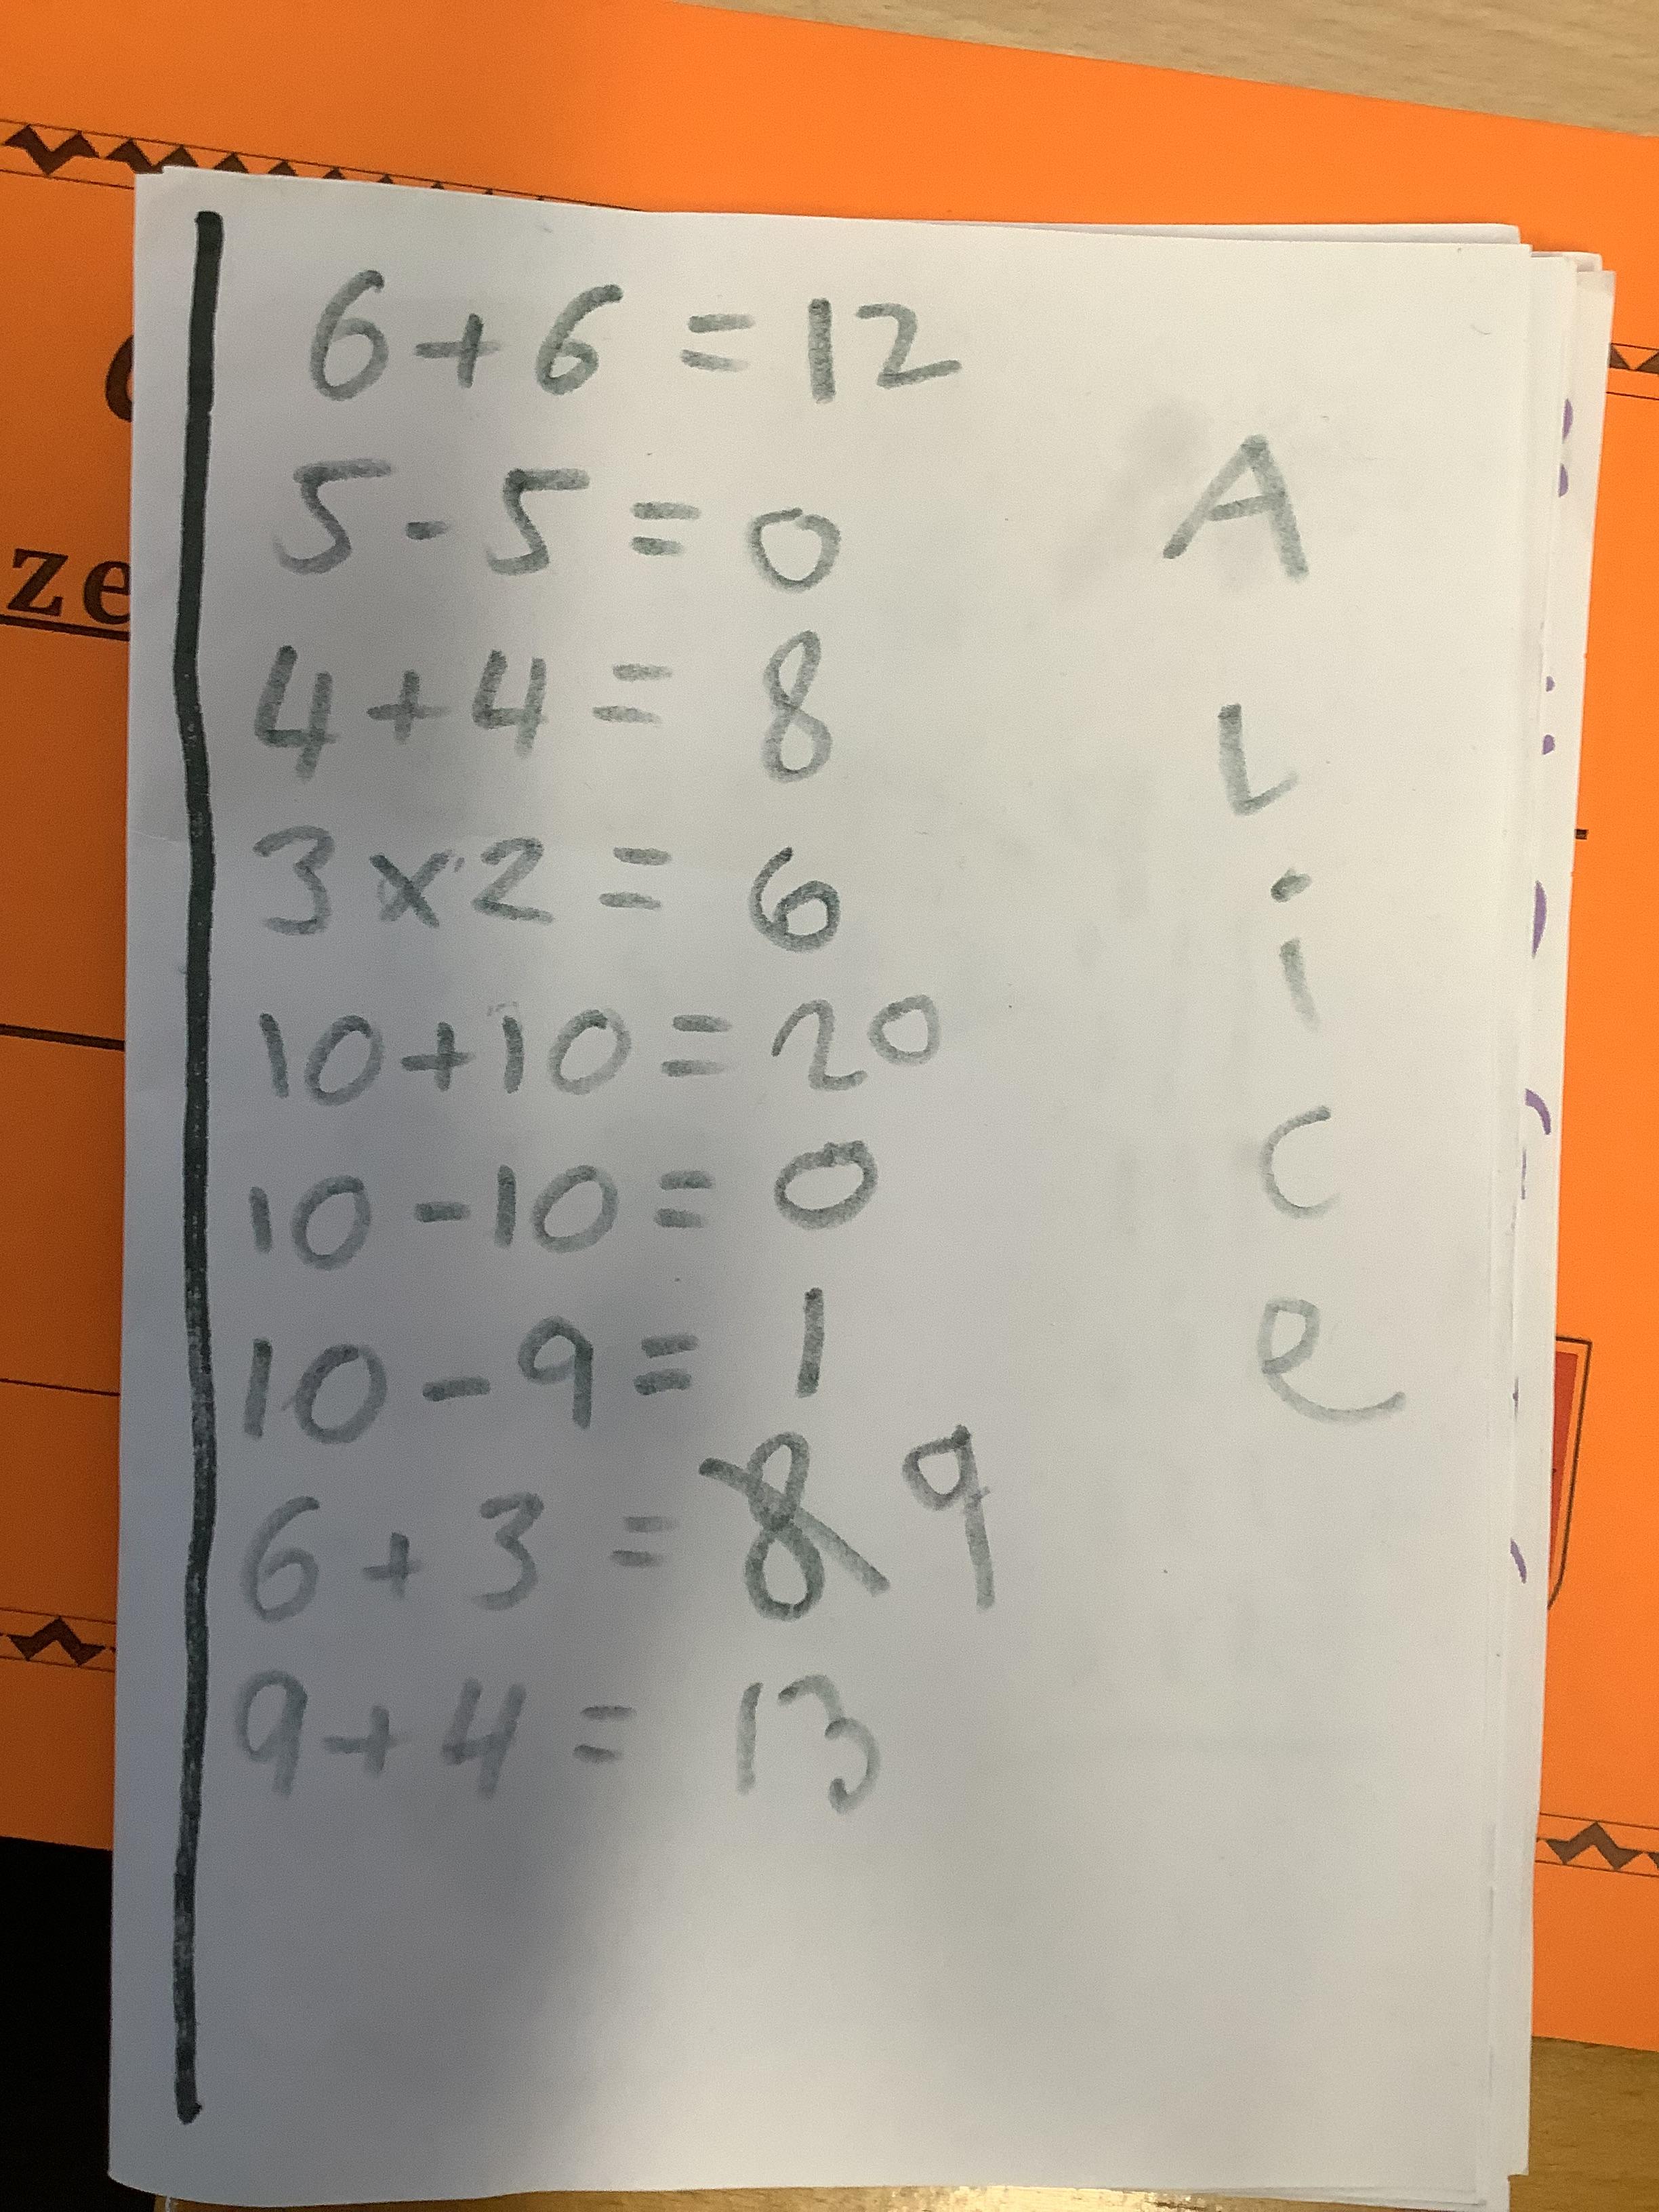 6+6=12
5-5=0
4+4=8
3x2=6
10+10=20
10-10=0
10-9=1
6+3=8 9
9+4=13
A
L
i
c
e
ze